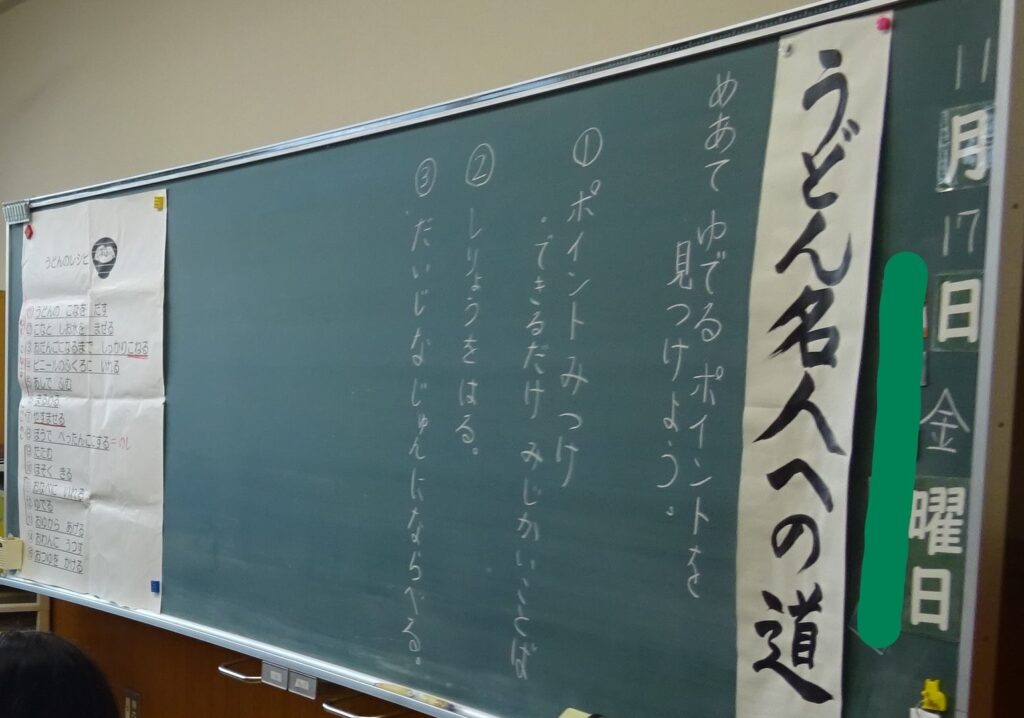 11月17日金曜日
うどん名人への道
めあて ゆでるポイントを
見つけよう。
① ポイントみつけ
・できるだけ みじかいことば
② しりょうをはる。
③ だいじなじゅんにならべる。
うどんのレシピ
① うどんの こなを だす
② こなと しお水を まぜる
③ おだんごになるまで しっかりこねる
④ ビニールのふくろに いれる
⑤ あしで ふむ
⑥ まるめる
⑦ やすませる
⑧ ぼうで ぺったんこにする=のし
⑨ たたむ
⑩ ほそく きる
⑪ おなべに いれる
⑫ ゆでる
⑬ おゆから あげる
⑭ おわんに うつす
⑮ おつゆを かける